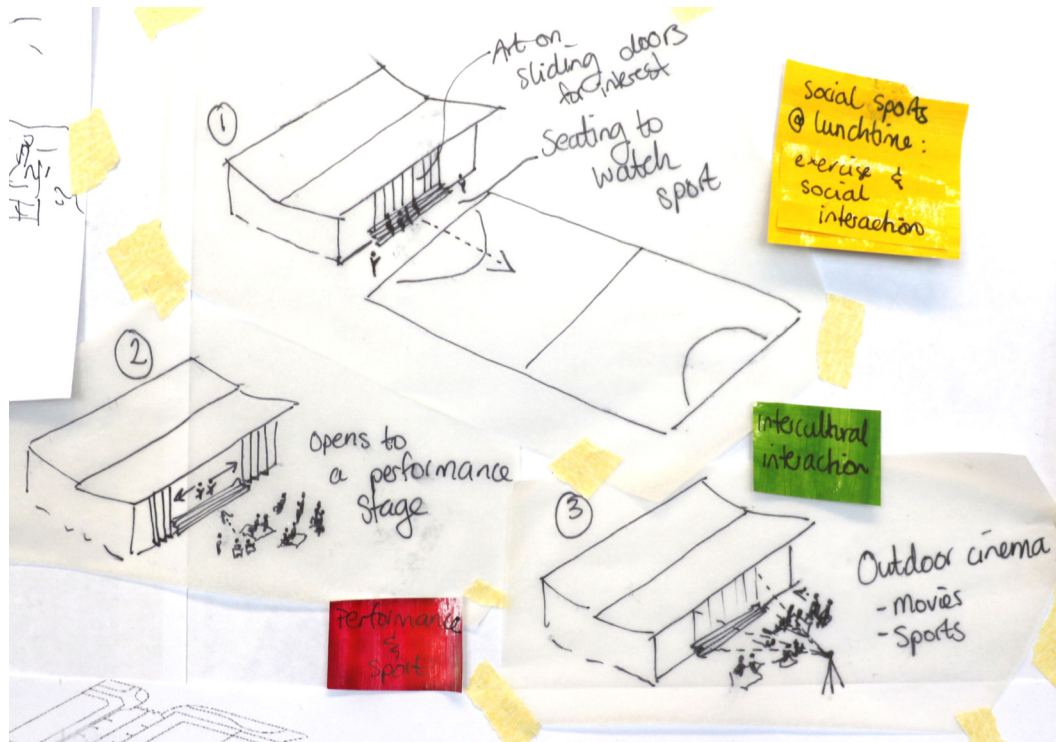 1
Art on
sliding doors
for interest
Seating to
watch
sport
social sports
@ lunchtime:
exercise &
social
interaction
2
opens to
a performance
stage
intercultural
interaction
3
Outdoor cinema
- Movies
- Sports
Performance
&
Sport